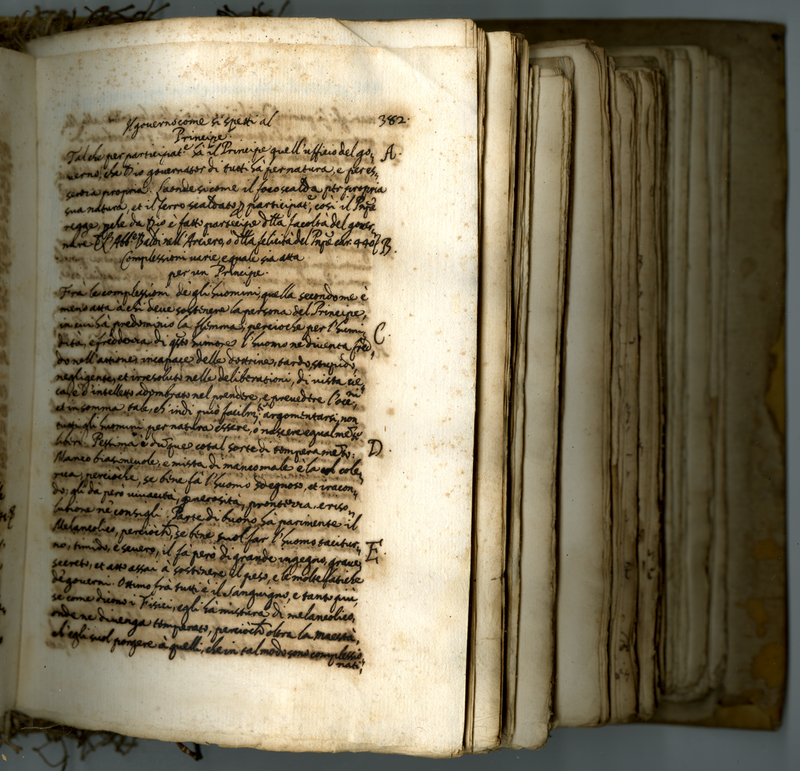 Il governo come si spetti al 382.
Principe.
Talche per participat.e hà il Principe quell'ufficio del go- A.
verno, che Dio governator di tutti hà per natura, e per es-
sentia propria. Laonde si come il foco scalda per propria
sua natura, et il ferro scaldato p participat.e, così il Pnpe
regge, perche da Dio è fatto partecipe della facoltà del gover-
nare. L'Abb.e Baldi nell'Arciero, o della felicità del Pnpe car. 440. B.
Complessioni varie, e quale sia atta
per un Principe.
Frà le complessioni de gli huomini, quella secondo me è
meno atta à chi deve sostenere la persona del Principe,
in cui hà predominio la flemma, percioche per l'humi- C.
dità, e freddezza di qsto humore l'huomo ne diventa fred-
do nell'attione, incapace delle dottrine, tardo, stupido,
negligente, et irresoluto nelle deliberationi, di vista
d'intelletto adombrato nel prendere, e prevedere
et in somma tale, ch'indi può facilm.te argomentarsi, non
tutti gli huomini per natura essere, ò nascere egualmente
liberi. Pessima è dunque cotal sorte di temperamento: D.
Manco biasimevole, e mista di manco male è la cole-
rica, percioche, se bene fà l'huomo sdegnoso, et iracon-
do, gli dà però vivacità, generosità, prontezza, e riso-
lutione ne consigli. Parte di buono hà parimente il
Melancolico, percioche, se bene suol far l'huomo tacitur-
no, timido, e severo, il fà però di grande ingegno, grave, E
secreto, et atto assai à sostenere il peso, e le molte fatiche
de governi. Ottimo frà tutti è il Sanguigno, e tanto più,
se come dicono i Fisici, egli hà mistura di melancolico,
onde ne divenga temperato, percioche oltra la maestà,
ch'egli suol porgere à quelli, che in tal modo sono complessio-
nati,